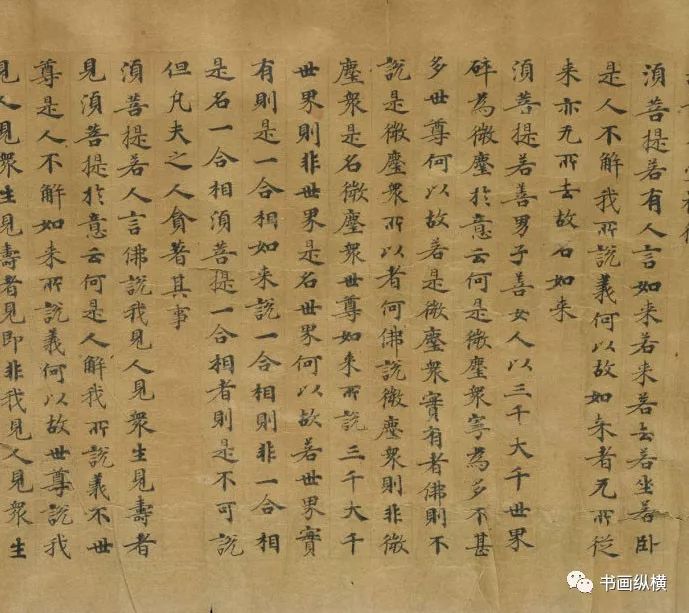 須菩提若有人言如来若来若去若坐若卧
是人不解我所說義何以故如来者无所從
来亦无所去故名如来
須菩提若善男子善女人以三千大千世界
碎為微塵於意云何是微塵衆寧為多不甚
多世尊何以故若是微塵衆實有者佛則不
說是微塵衆所以者何佛說微塵衆則非微
塵衆是名微塵衆世尊如来所說三千大千
世界則非世界是名世界何以故若世界實
有則是一合相如来說一合相則非一合相
是名一合相須菩提一合相者則是不可說
但凡夫之人貪著其事
須菩提若人言佛說我見人見衆生見壽者
見須菩提於意云何是人解我所說義不世
尊是人不解如来所說義何以故世尊說我
見人見衆生見壽者見即非我見人見衆生
书画纵横